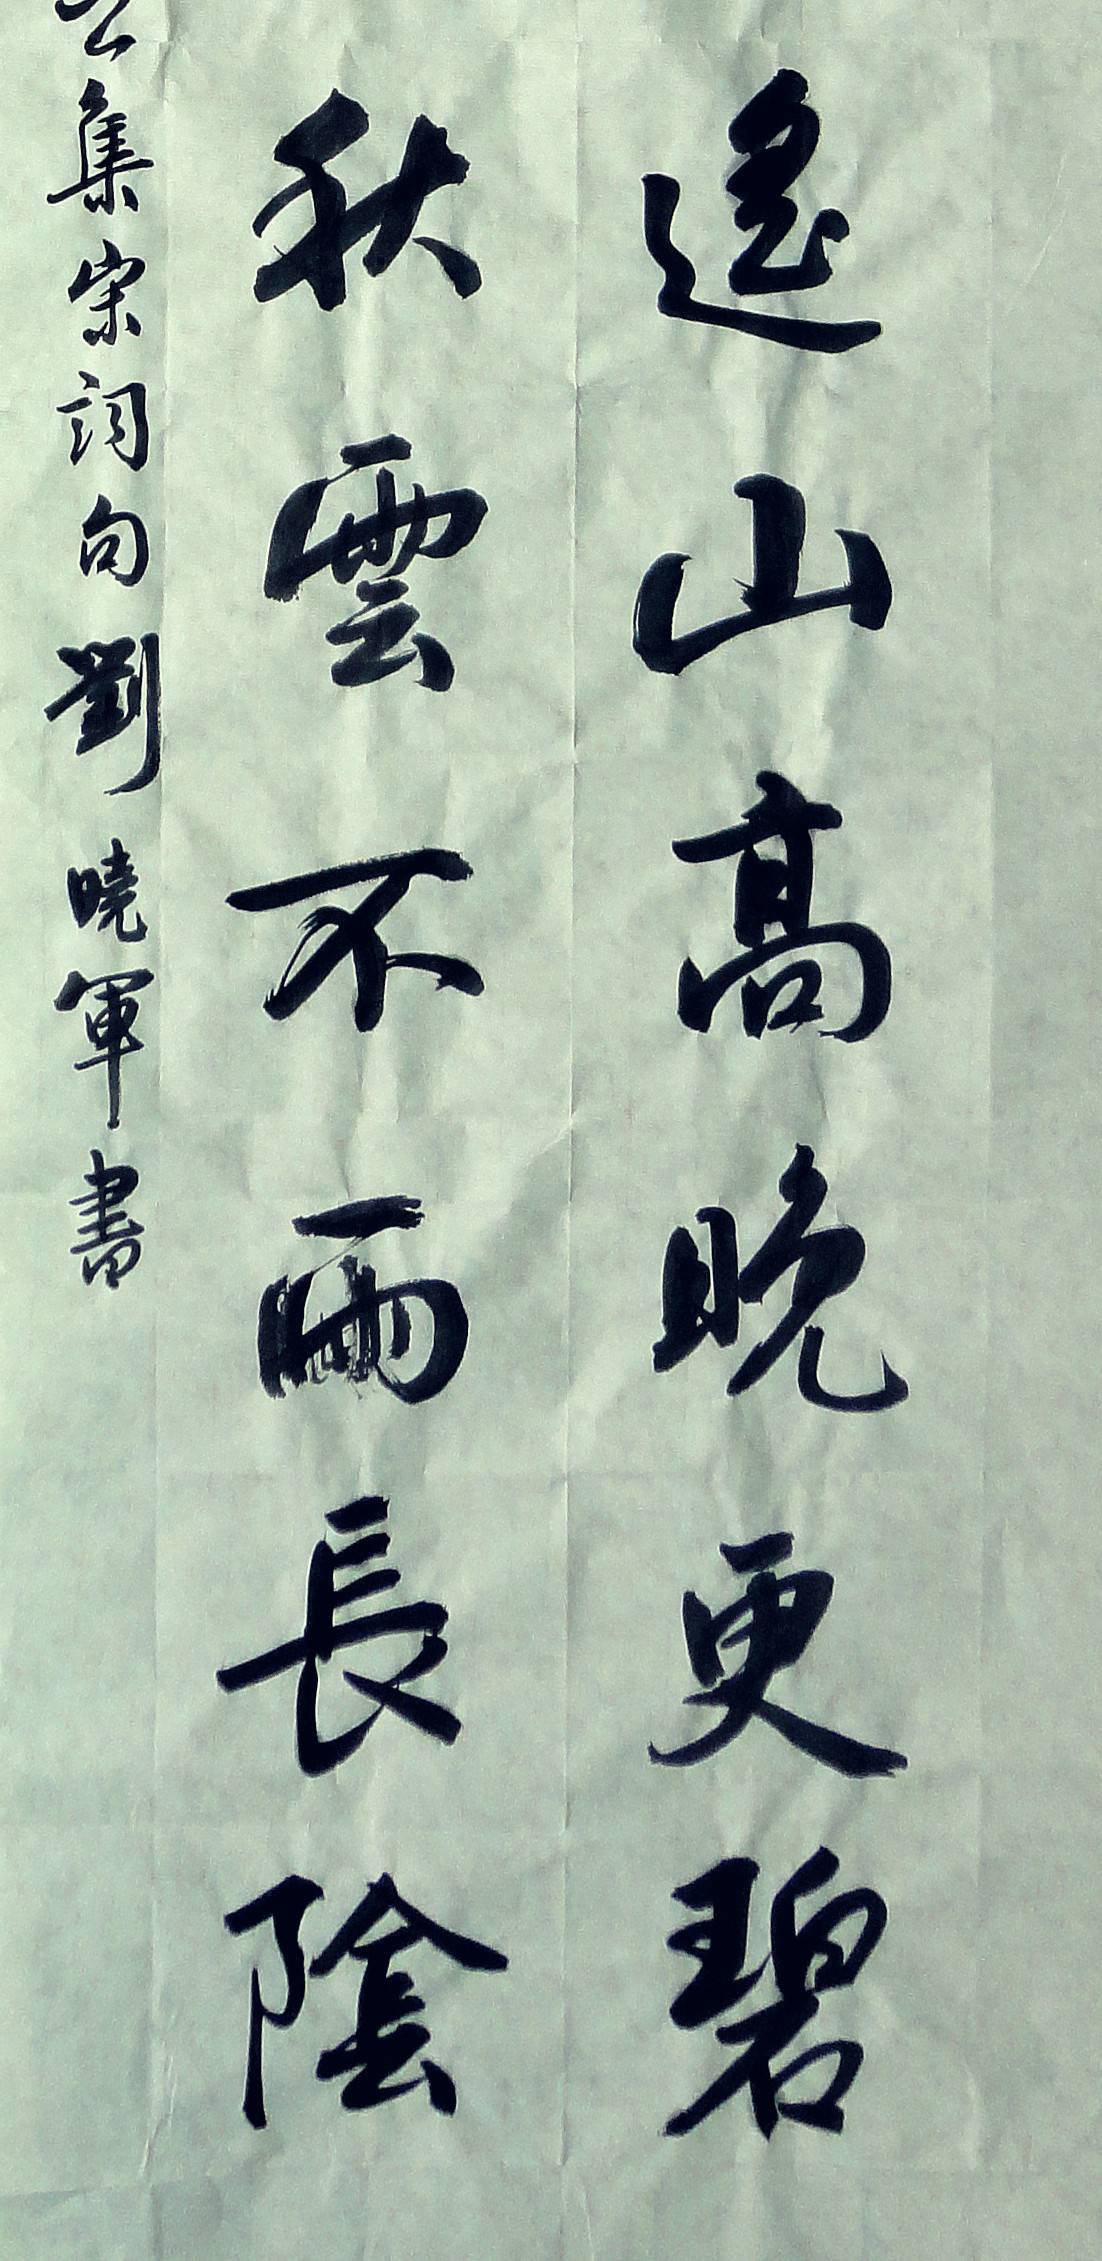 遙山高晚更碧
秋雲不雨長陰
集宋詞句劉曉軍書